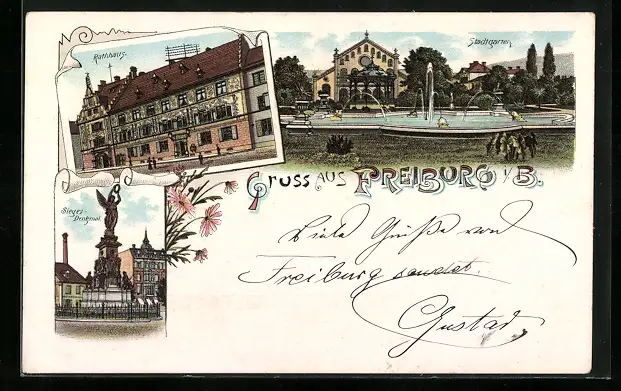 Rathhaus.
Stadtgarten
Gruss aus Freiburg i/B.
Sieges-
Denkmal
Viele Grüße von
Freiburg sendet
Gustav